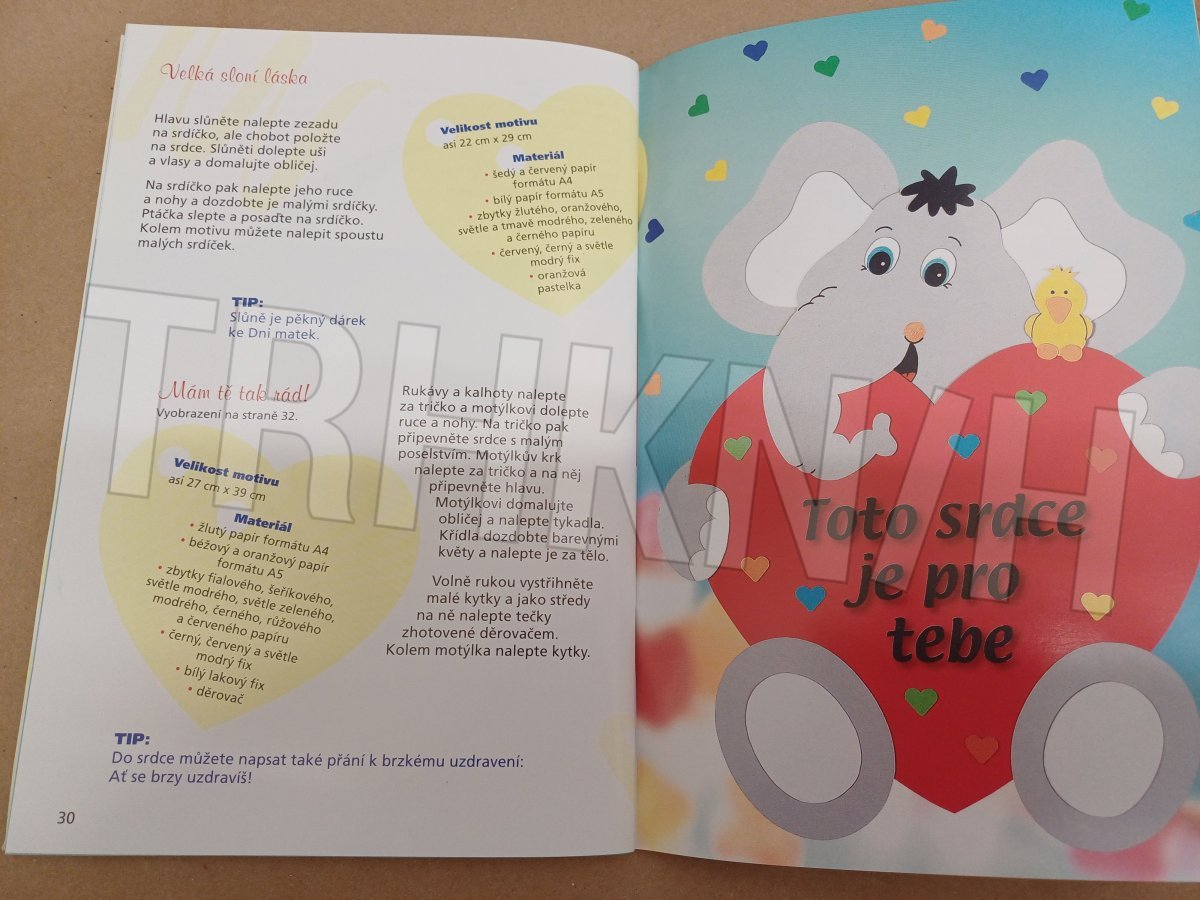 Velká sloní láska
Hlavu slůněte nalepte zezadu
na srdíčko, ale chobot položte
na srdce. Slůněti dolepte uši
a vlasy a domalujte obličej.
Na srdíčko pak nalepte jeho ruce
a nohy a dozdobte je malými srdíčky.
Ptáčka slepte a posaďte na srdíčko.
Kolem motivu můžete nalepit spoustu
malých srdíček.
Velikost motivu
asi 22 cm x 29 cm
Materiál
• šedý a červený papír
formátu A4
• bílý papír formátu A5
• zbytky žlutého, oranžového,
světle a tmavě modrého, zeleného
a černého papíru
• červený, černý a světle
modrý fix
• oranžová
pastelka
TIP:
Slůně je pěkný dárek
ke Dni matek.
Mám tě tak rád!
Vyobrazení na straně 32.
Velikost motivu
asi 27 cm x 39 cm
Materiál
• žlutý papír formátu A4
• béžový a oranžový papír
formátu A5
• zbytky fialového, šeříkového,
světle modrého, světle zeleného,
modrého, černého, růžového
a červeného papíru
• černý, červený a světle
modrý fix
• bílý lakový fix
• děrovač
Rukávy a kalhoty nalepte
za tričko a motýlkovi dolepte
ruce a nohy. Na tričko pak
připevněte srdce s malým
poselstvím. Motýlkův krk
nalepte za tričko a na něj
připevněte hlavu.
Motýlkovi domalujte
obličej a nalepte tykadla.
Křídla dozdobte barevnými
květy a nalepte je za tělo.
Volně rukou vystřihněte
malé kytky a jako středy
na ně nalepte tečky
zhotovené děrovačem.
Kolem motýlka nalepte kytky.
TIP:
Do srdce můžete napsat také přání k brzkému uzdravení:
Ať se brzy uzdravíš!
30
Toto srdce
je pro
tebe
TRHKNIH